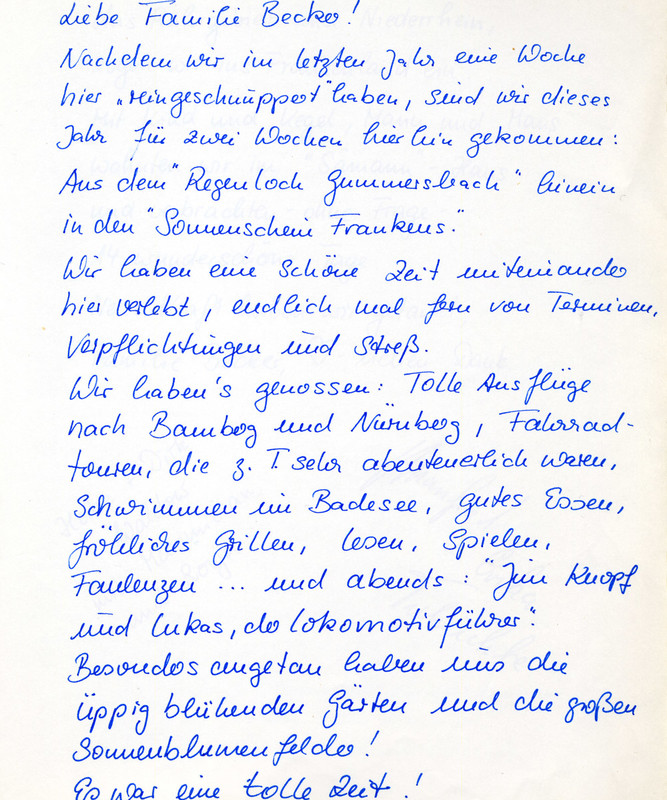 Liebe Familie Becker!
Nachdem wir im letzten Jahr eine Woche
hier „reingeschnuppert" haben, sind wir dieses
Jahr für zwei Wochen hierhin gekommen:
Aus dem "Regenloch Gummersbach" hinein
in den "Sonnenschein Frankens."
Wir haben eine schöne Zeit miteinander
hier verlebt, endlich mal fern von Terminen,
Verpflichtungen und Streß.
Wir haben's genossen: Tolle Ausflüge
nach Bamberg und Nürnberg, Fahrrad-
touren, die z. T. sehr abenteuerlich waren,
Schwimmen im Badesee, gutes Essen,
fröhliches Grillen, lesen, Spielen,
Faulenzen ... und abends: "Jim Knopf
und Lukas, der Lokomotivführer".
Besonders angetan haben uns die
üppig blühenden Gärten und die großen
Sonnenblumenfelder!
Es war eine tolle Zeit!